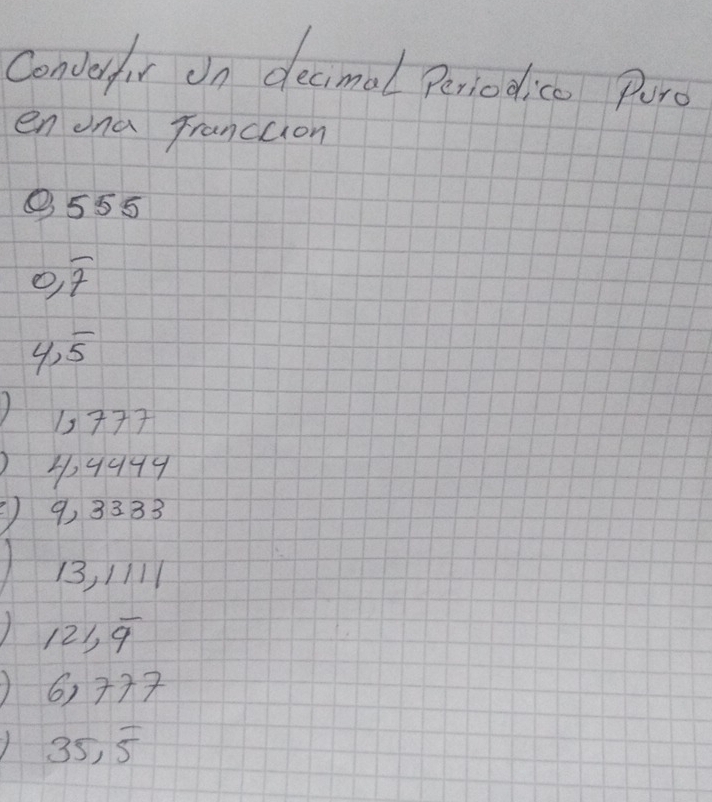 Convertir un decimal Periodico Puro
en una Francciion
0,555
0,7̅
4,5̅
) 1,777
) 4,4444
) 9,3333
) 13,1111
) 121,9̅
) 6,777
) 35,5̅